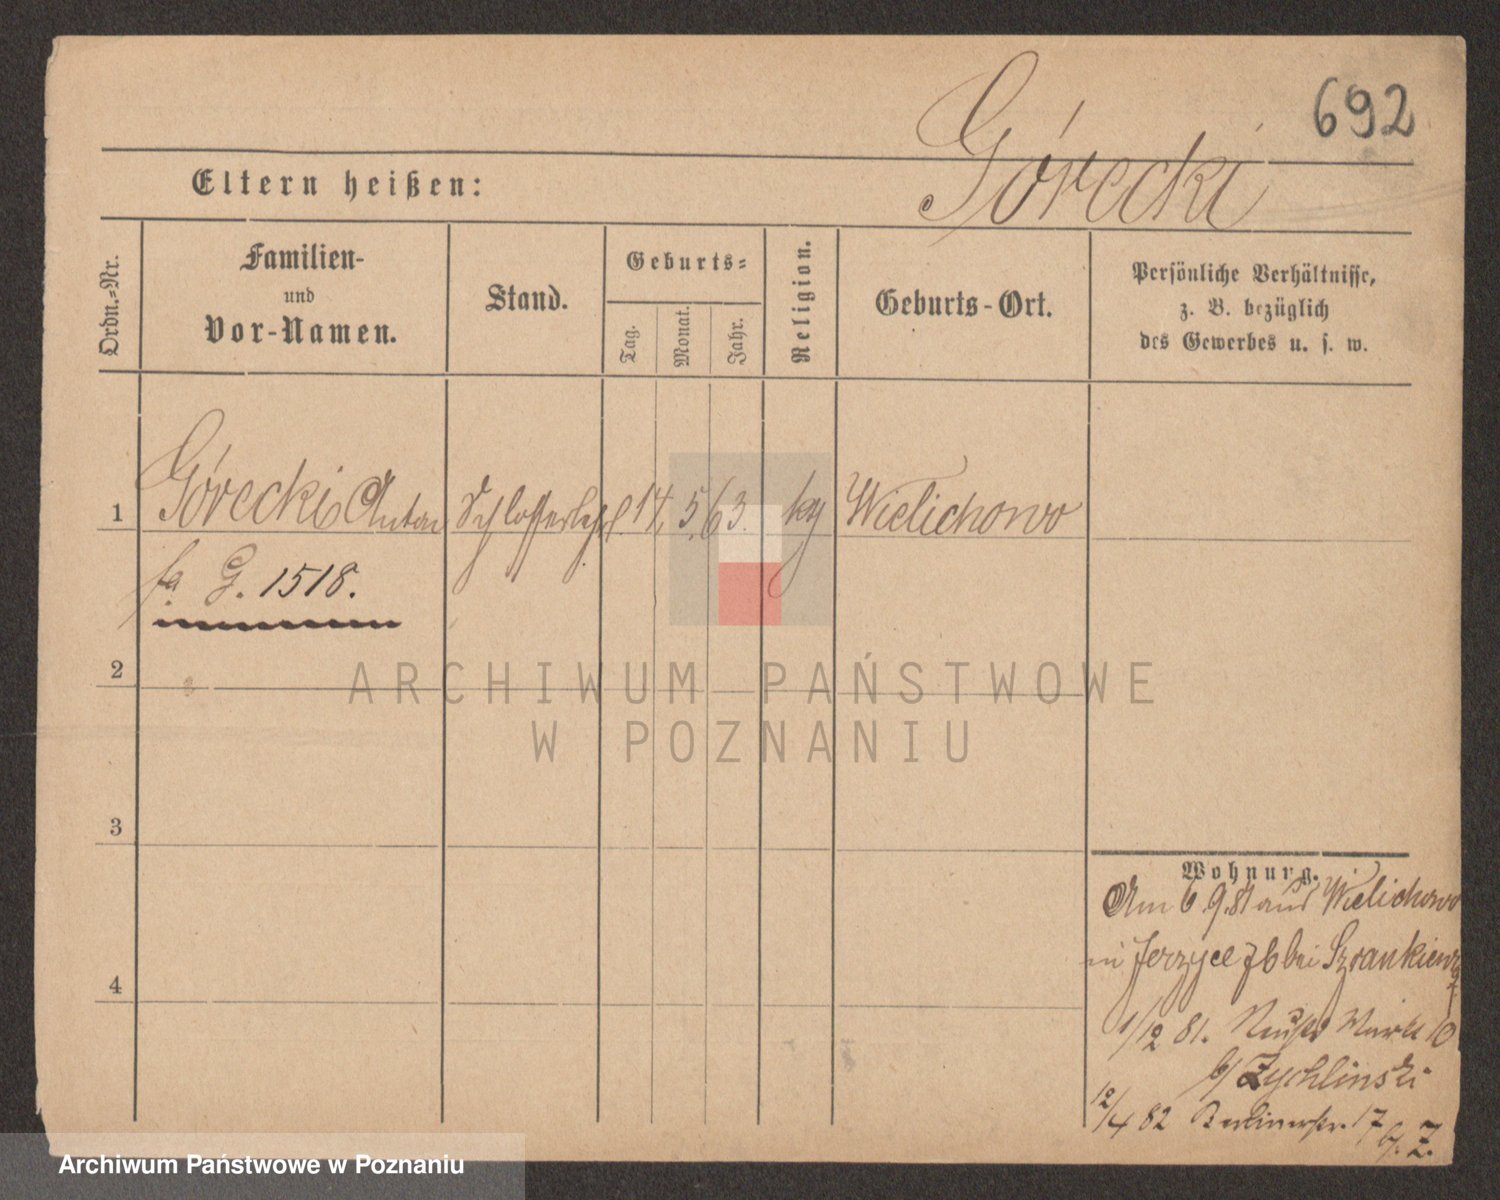 692
Górecki
Eltern heißen:
Ordn.-Nr.
Familien-
und
Vor-Namen.
Stand.
Geburts-
Tag.
Monat.
Jahr.
Religion.
Geburts-Ort.
Persönliche Verhältnisse,
z. B. bezüglich
des Gewerbes u. s. w.
1 Górecki Anton Schlosserlehrl. 14. 5. 63. kg Wielichowo
fa G. 1518.
2
ARCHIWUM PAŃSTWOWE
W POZNANIU
3
Wohnung.
Am 6 9.81 aus Wielichowo
in Jerzyce 76 bei
4
1/12 81. Markt 10
b/ Zychlinski
12/4 82 Berlinerstr. 17
b/. Z.
Archiwum Państwowe w Poznaniu